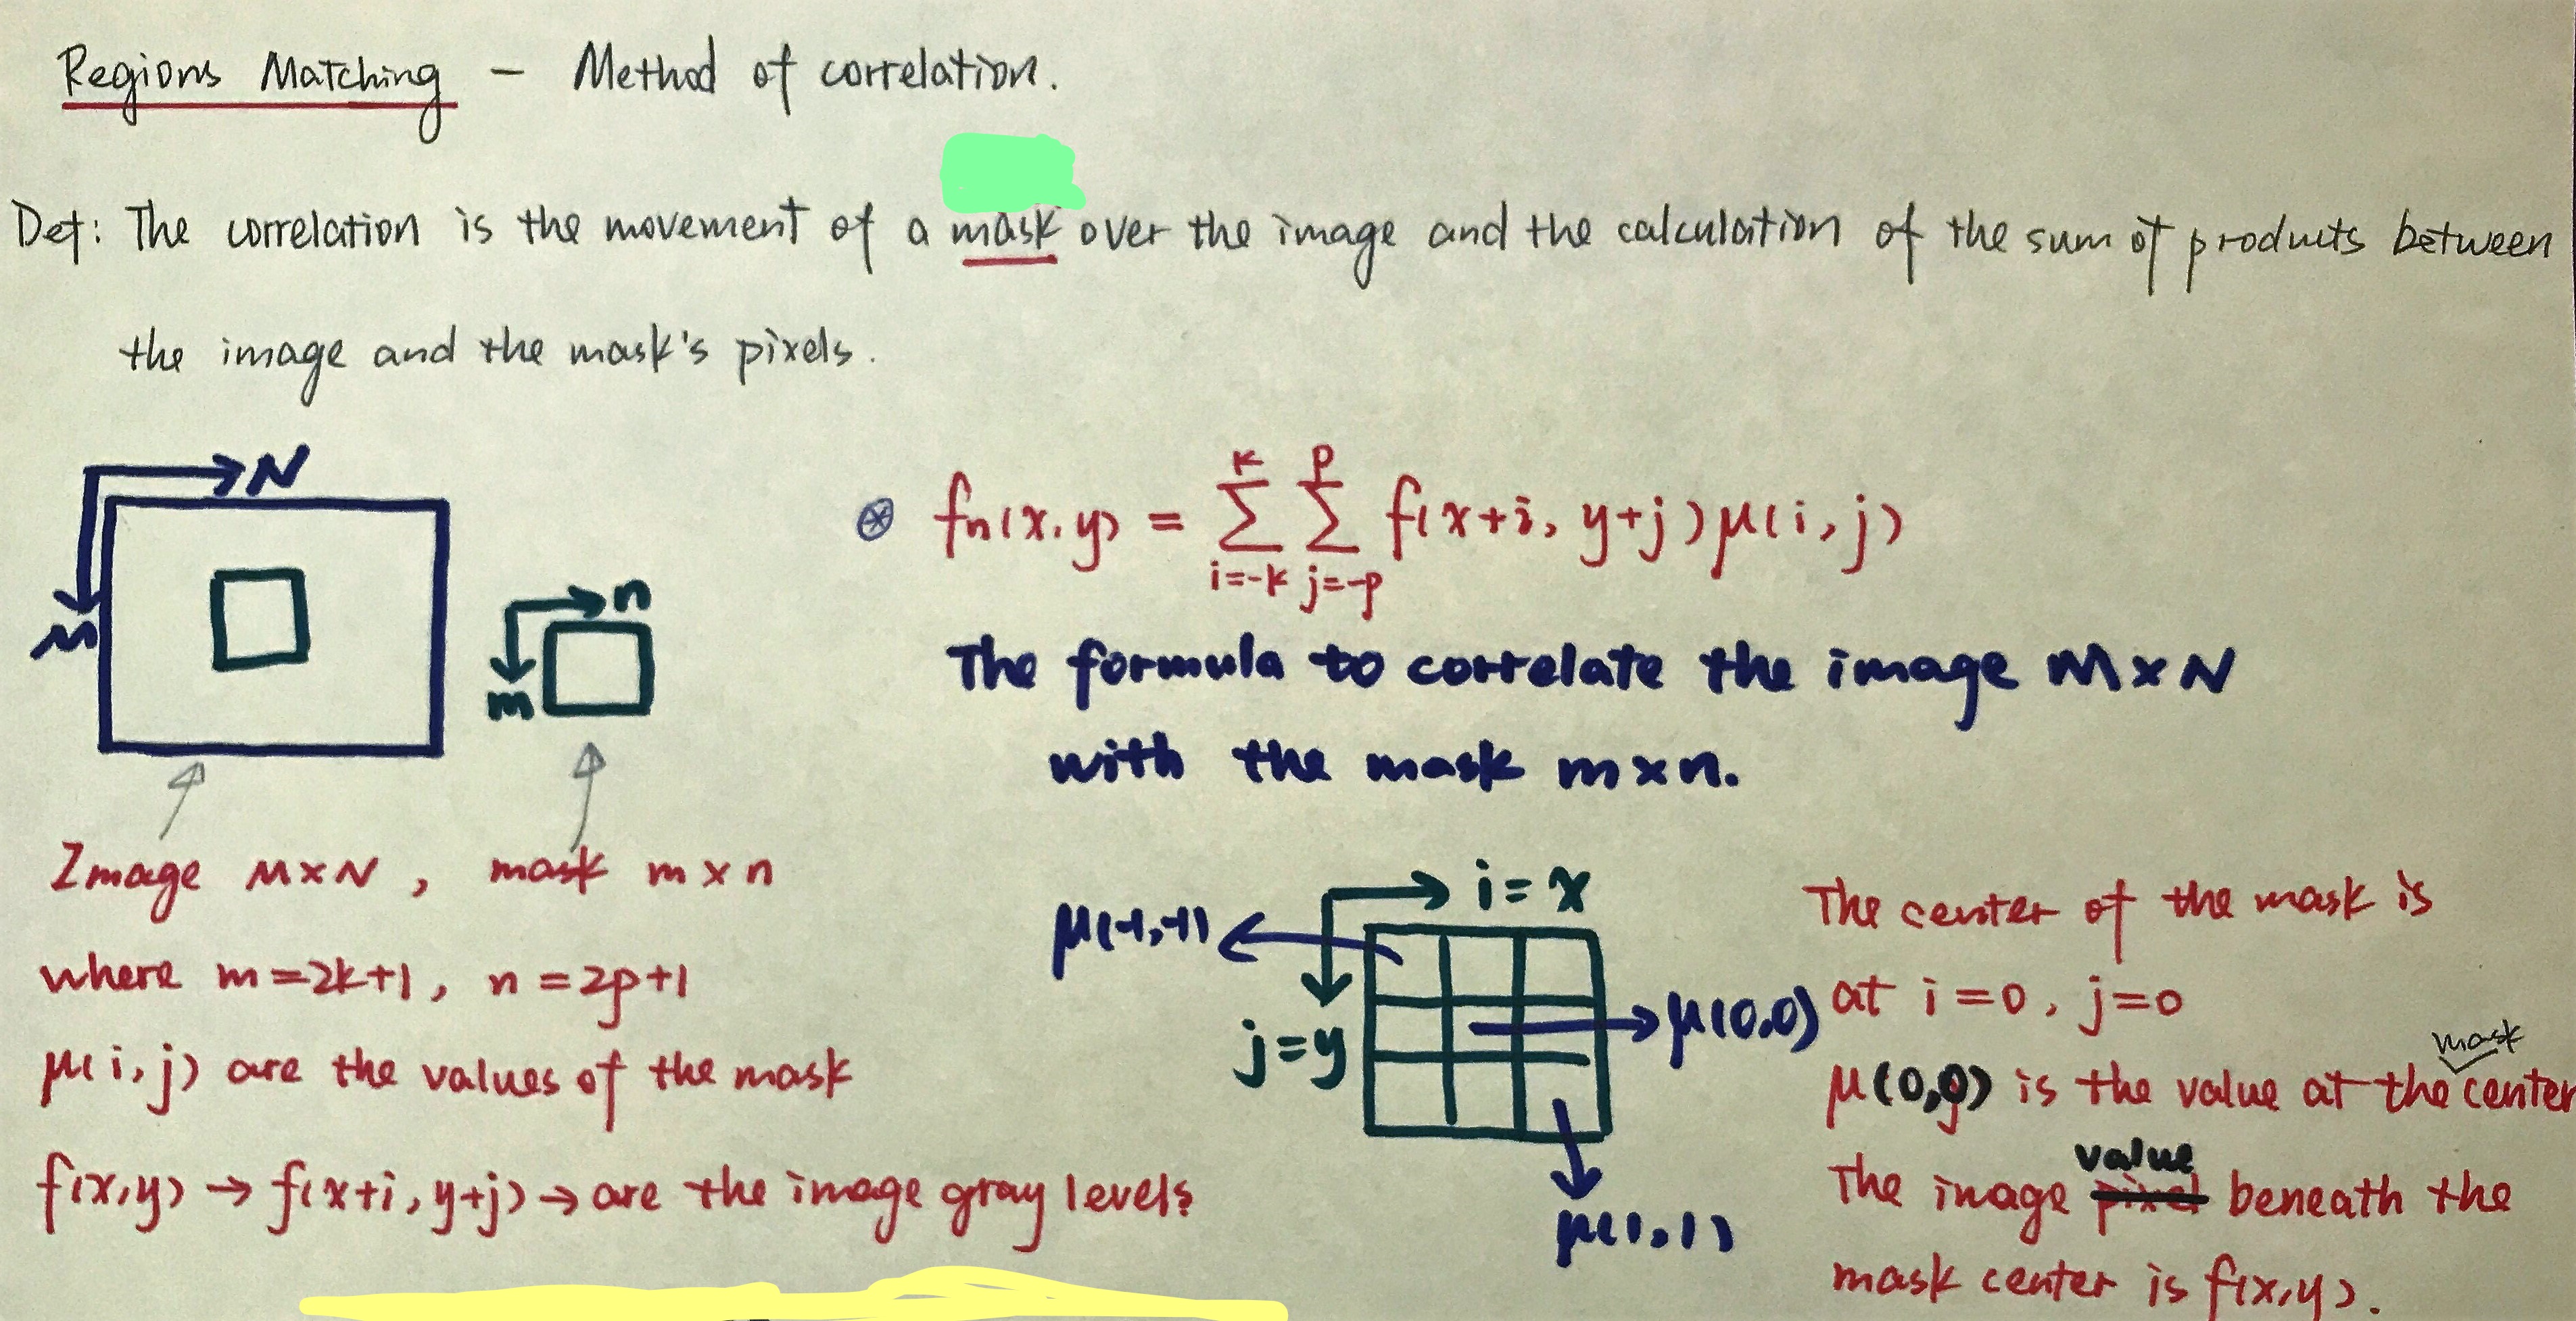 Regions Matching - Method of correlation.
Def: The correlation is the movement of a mask over the image and the calculation of the sum of products between
the image and the mask's pixels.
N
M
n
m
⊛ fn(x,y) = Σ_{i=-k}^{k} Σ_{j=-p}^{p} f(x+i, y+j)μ(i,j)
The formula to correlate the image M×N
with the mask m×n.
Image M×N, mask m×n
where m=2k+1, n=2p+1
μ(i,j) are the values of the mask
f(x,y) → f(x+i, y+j) → are the image gray levels
i=x
j=y
μ(-1,-1)
μ(0,0)
μ(1,1)
The center of the mask is
at i=0, j=0
μ(0,0) is the value at the mask center
The image value beneath the
mask center is f(x,y).